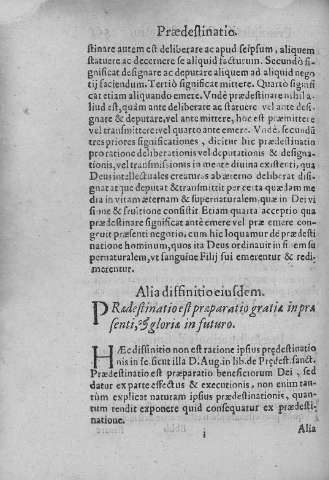 Prædestinatio.
stinare autem est deliberare ac apud seipsum, aliquem
statuere ac decernere se aliquid facturum. Secundò si-
gnificat designare ac deputare aliquem ad aliquid nego
tij faciendum. Tertiò significat mittere. Quartò signifi
cat etiam aliquando emere. Vndè prædestinare nihil a-
liud est, quàm ante deliberare ac statuere vel ante desi-
gnare & deputare, vel ante mittere, hoc est præmittere
vel transmittere: vel quarto ante emere. Vndè, secundũ
tres priores significationes, dicitur hîc prædestinatio
pro ratione deliberationis vel deputationis & designa-
tionis, vel transmissionis in mente diuina existenti, qua
Deus intellectuales creaturas ab æterno deliberat disi
gnat atque deputat & transmittit per certa quædam me
dia in vitam æternam & supernaturalem, quæ in Dei vi
sione & fruitione consistit Etiam quarta acceptio qua
prædestinare significat antè emere vel præ emere con-
gruit præsenti negotio, cum hîc loquamur de prædesti
natione hominum, quos ita Deus ordinauit in finem su
pernaturalem, vt sanguine Filij sui emerentur & redi-
merentur.
Alia diffinitio eiusdem.
PRædestinatio est præparatio gratiæ in præ
senti, & gloriæ in futuro.
HÆc diffinitio non est ratione ipsius prędestinatio
nis in se, sicut illa D. Aug. in lib. de Prędest. sanct.
Prædestinatio est præparatio beneficiorum Dei, sed
datur ex parte effectus & executionis, non enim tan-
tùm explicat naturam ipsius prædestinationis, quan-
tum tendit exponere quid consequatur ex prædesti-
natione.
i
Alia